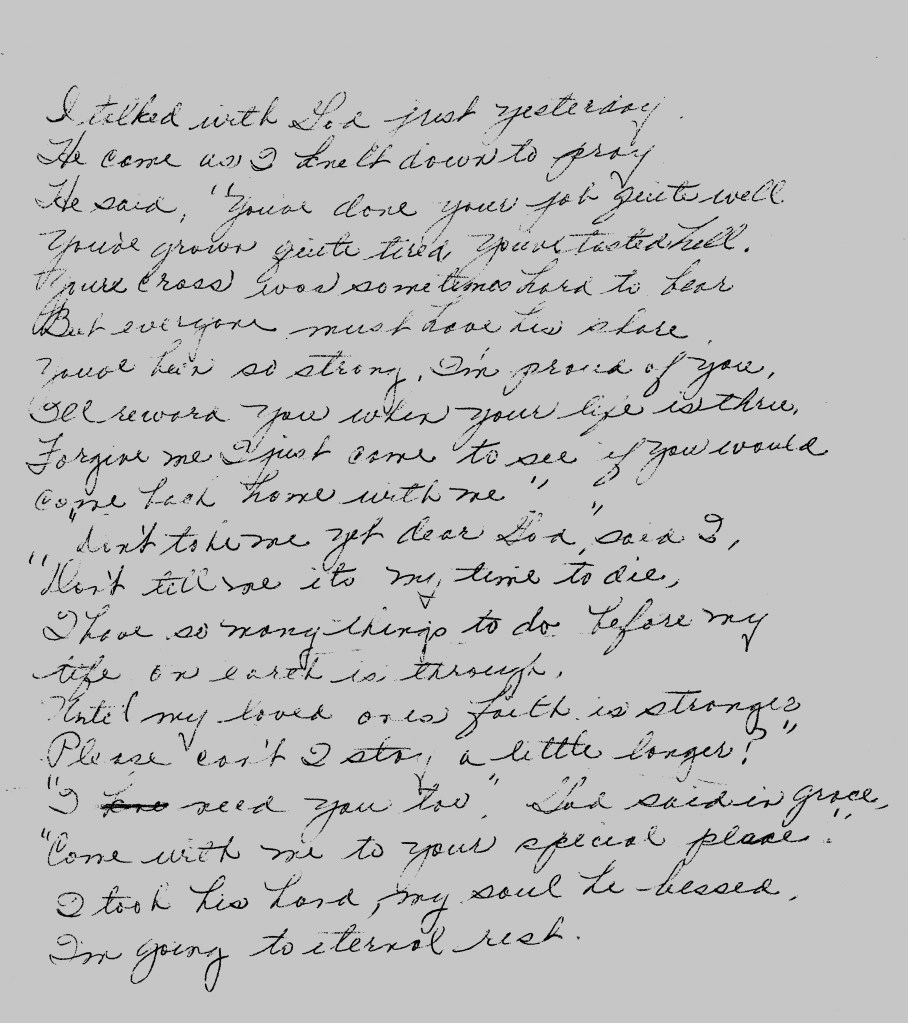 I talked with God just yesterday.
He come as I knelt down to pray
He said, "You've done your job quite well
You've grown quite tired, you've tasted hell.
Youre cross was sometimes hard to bear
But everyone must have his share.
You've been so strong, I'm proud of you,
I'll reward you when your life is thru.
Forgive me I just come to see if you would
come back home with me"
"don't take me yet dear God," said I,
"Don't tell me its my time to die,
I have so many things to do before my
life on earth is through.
Until my loved ones faith is stronger
Please can't I stay a little longer?"
"I need you too". God said in grace,
"Come with me to your special place."
I took his hand, my soul he bessed,
I'm going to eternal rest.